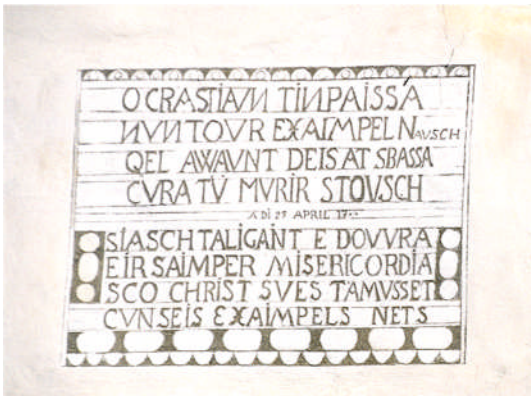 O CRASTIAUN TINPAISSA
NUN TOUR EXAIMPEL NAUSCH
QEL AWAUNT DEIS AT SBASSA
CVRA TÜ MVRIR STOVSCH
A DÌ 25 APRIL
SIASCH TALIGAINT E DOVVRA
EIR SAIMPER MISERICORDIA
SCO CHRIST SVES TAMVSSET
CVN SEIS EXAIMPELS NETS